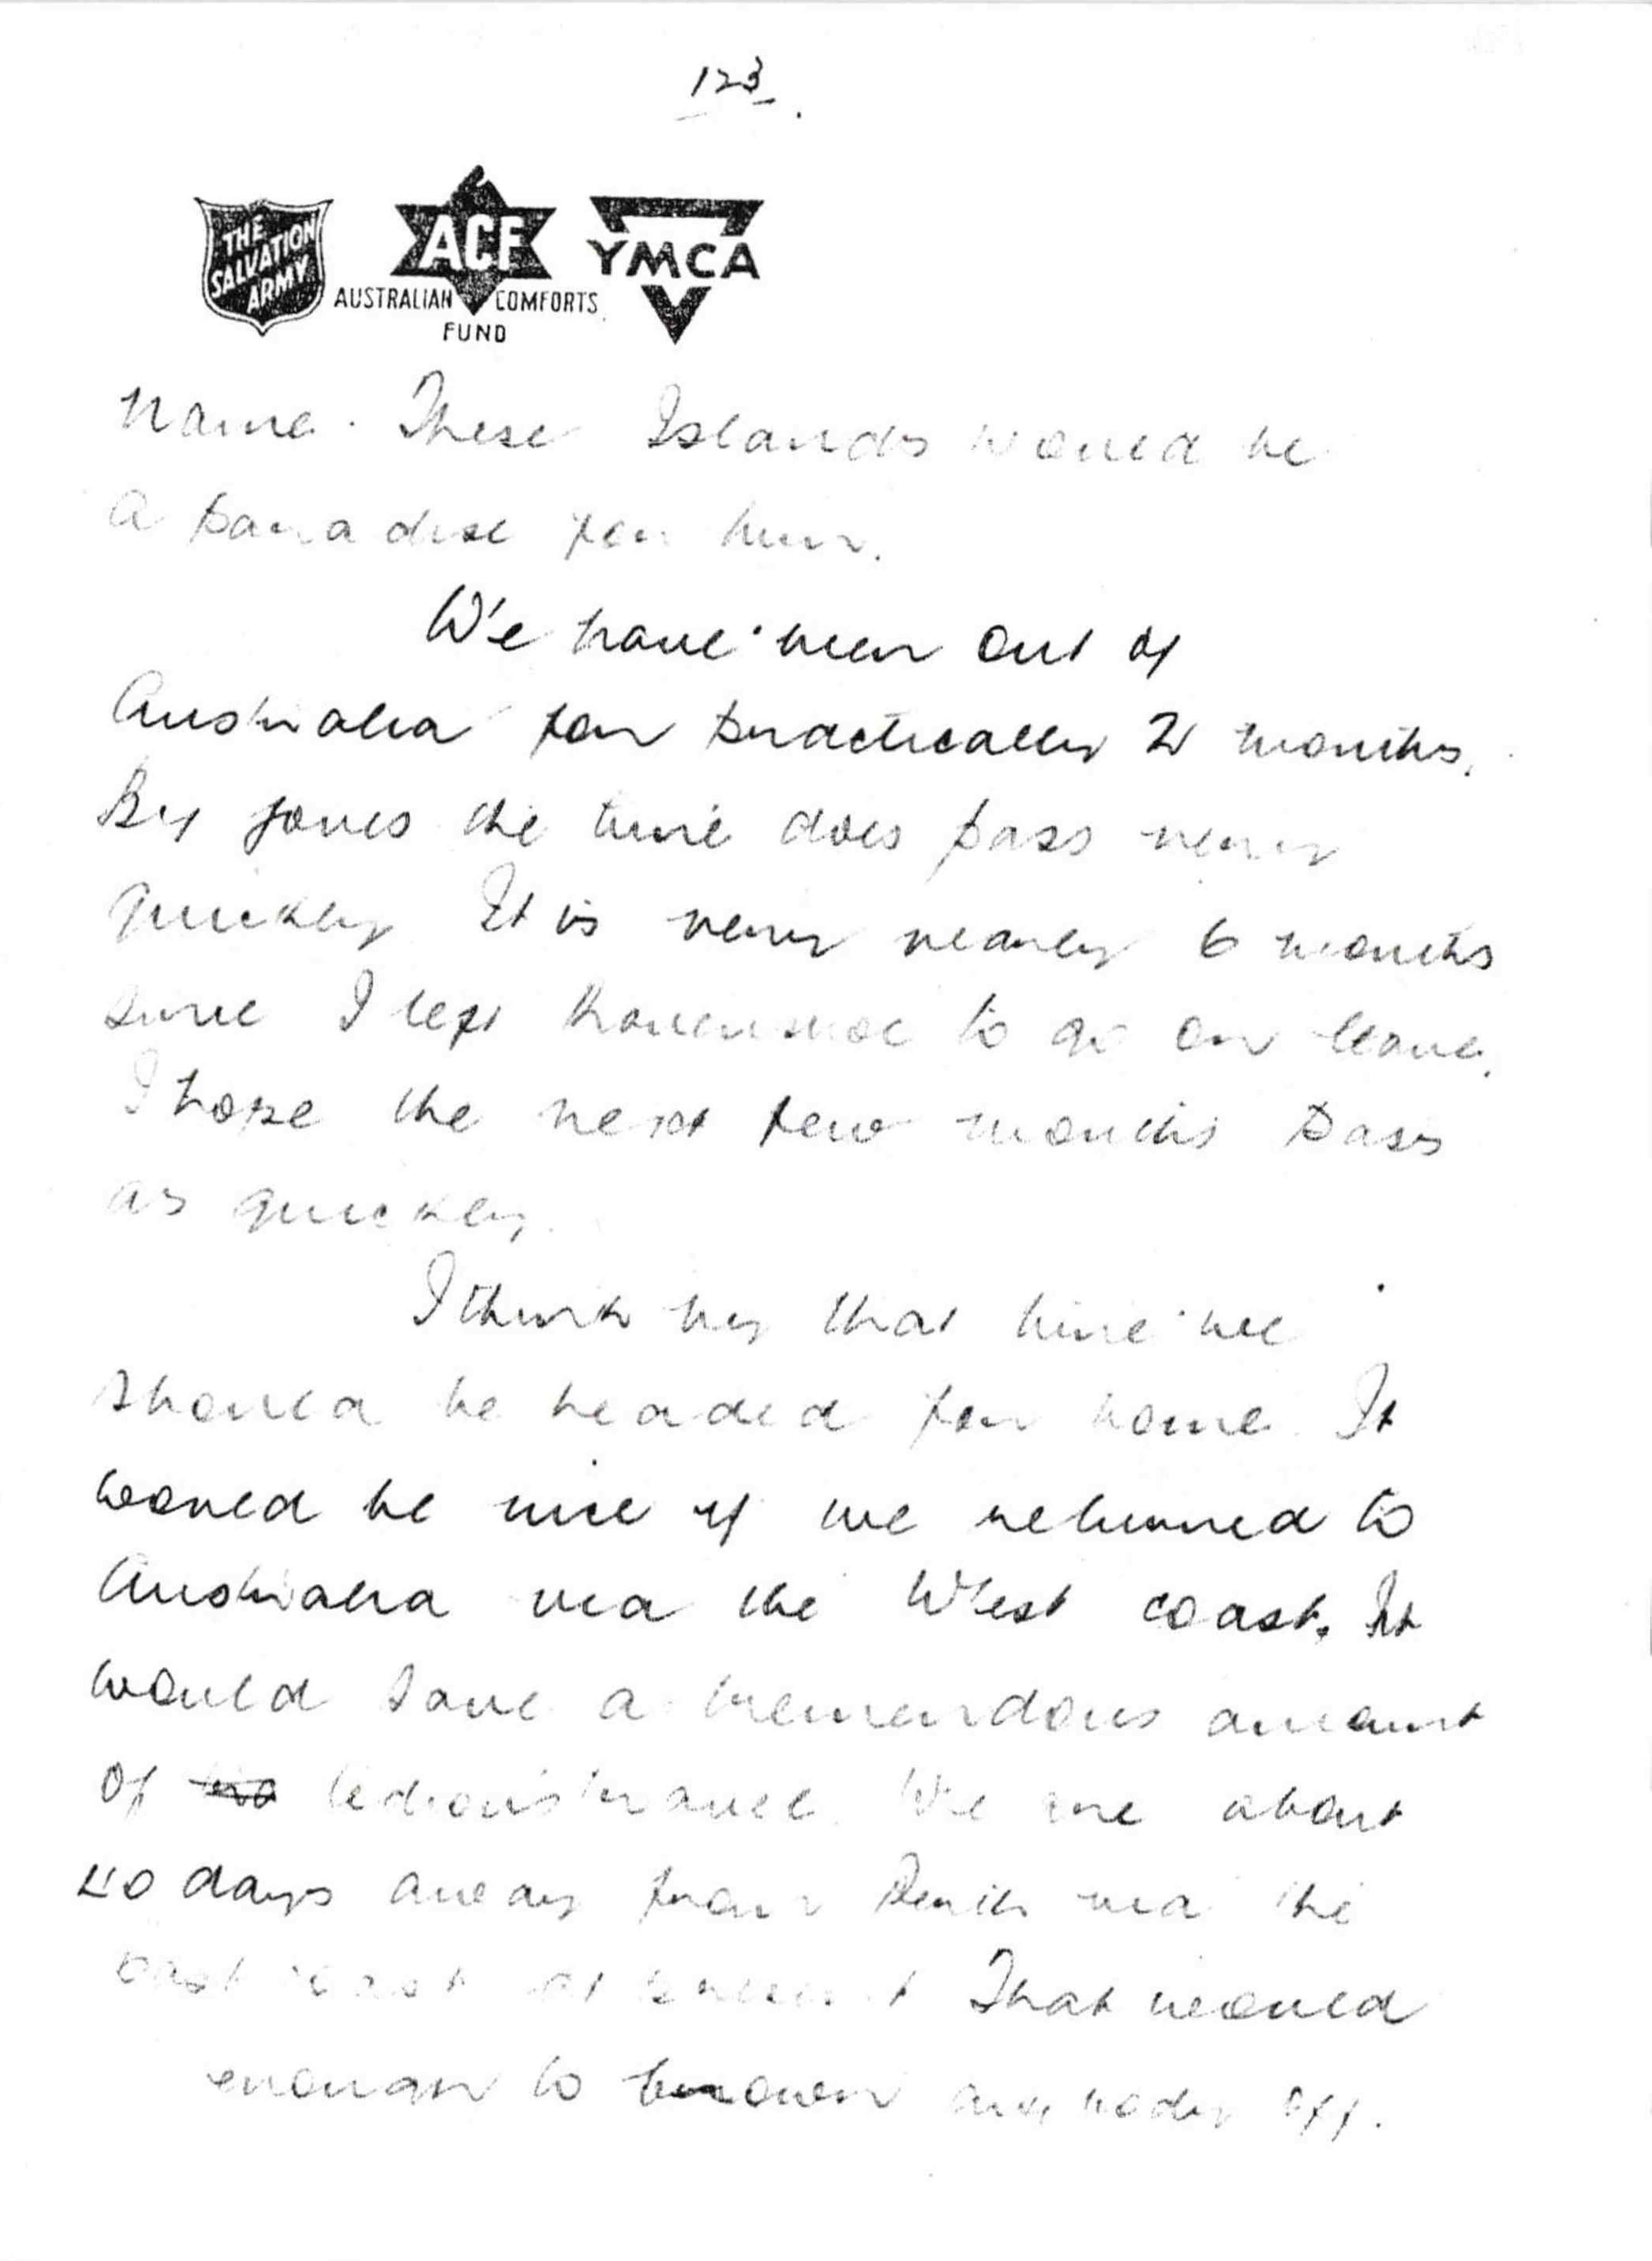 123.
THE SALVATION ARMY
ACF
AUSTRALIAN COMFORTS FUND
YMCA
name. These Islands would be
a paradise for him.
We have been out of
Australia for practically 2 months.
By joves the time does pass very
quickly It is very nearly 6 months
since I left to go on leave.
I hope the next few months pass
as quickly.
I think by that time we
should be headed for home. It
would be nice if we returned to
Australia via the West coast. It
would save a tremendous amount
of tedious travel. We are about
40 days away from Perth via the
east coast at present That would
enough to brown any body off.